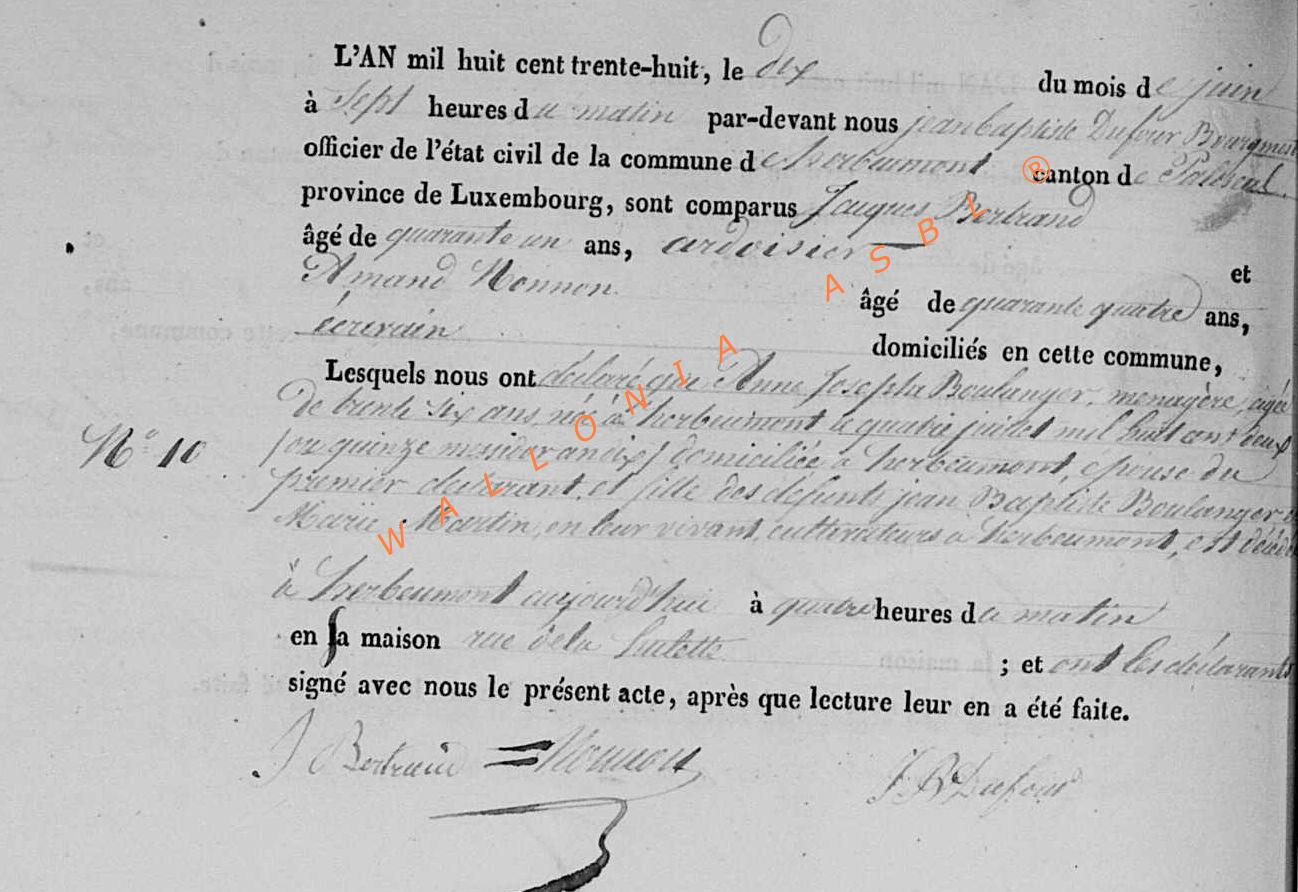 L'AN mil huit cent trente-huit, le dix du mois de juin
à sept heures du matin par-devant nous jean baptiste Dufour Bourgmest
officier de l'état civil de la commune de herbeumont canton de Paliseul
province de Luxembourg, sont comparus Jacques Bertrand
âgé de quarante un ans, ardoisier et
Amand Monnon âgé de quarante quatre ans,
écrivain domiciliés en cette commune,
Lesquels nous ont déclaré que Anne Josepha Boulanger, menagère, agée
de trente six ans, née à herbeumont le quatre juillet mil huit cent deux
N° 10
(ou quinze messidor an dix) domiciliée à herbeumont, épouse du
premier déclarant, et fille des defunts jean Baptiste Boulanger &
Marie Martin, en leur vivant, cultivateurs à herbeumont, est décédé
à herbeumont aujourd'hui à quatre heures du matin
en sa maison rue de la hulette ; et ont les déclarants
signé avec nous le présent acte, après que lecture leur en a été faite.
J Bertrand Monnon JB Dufour
WALLONIA ASBL ®